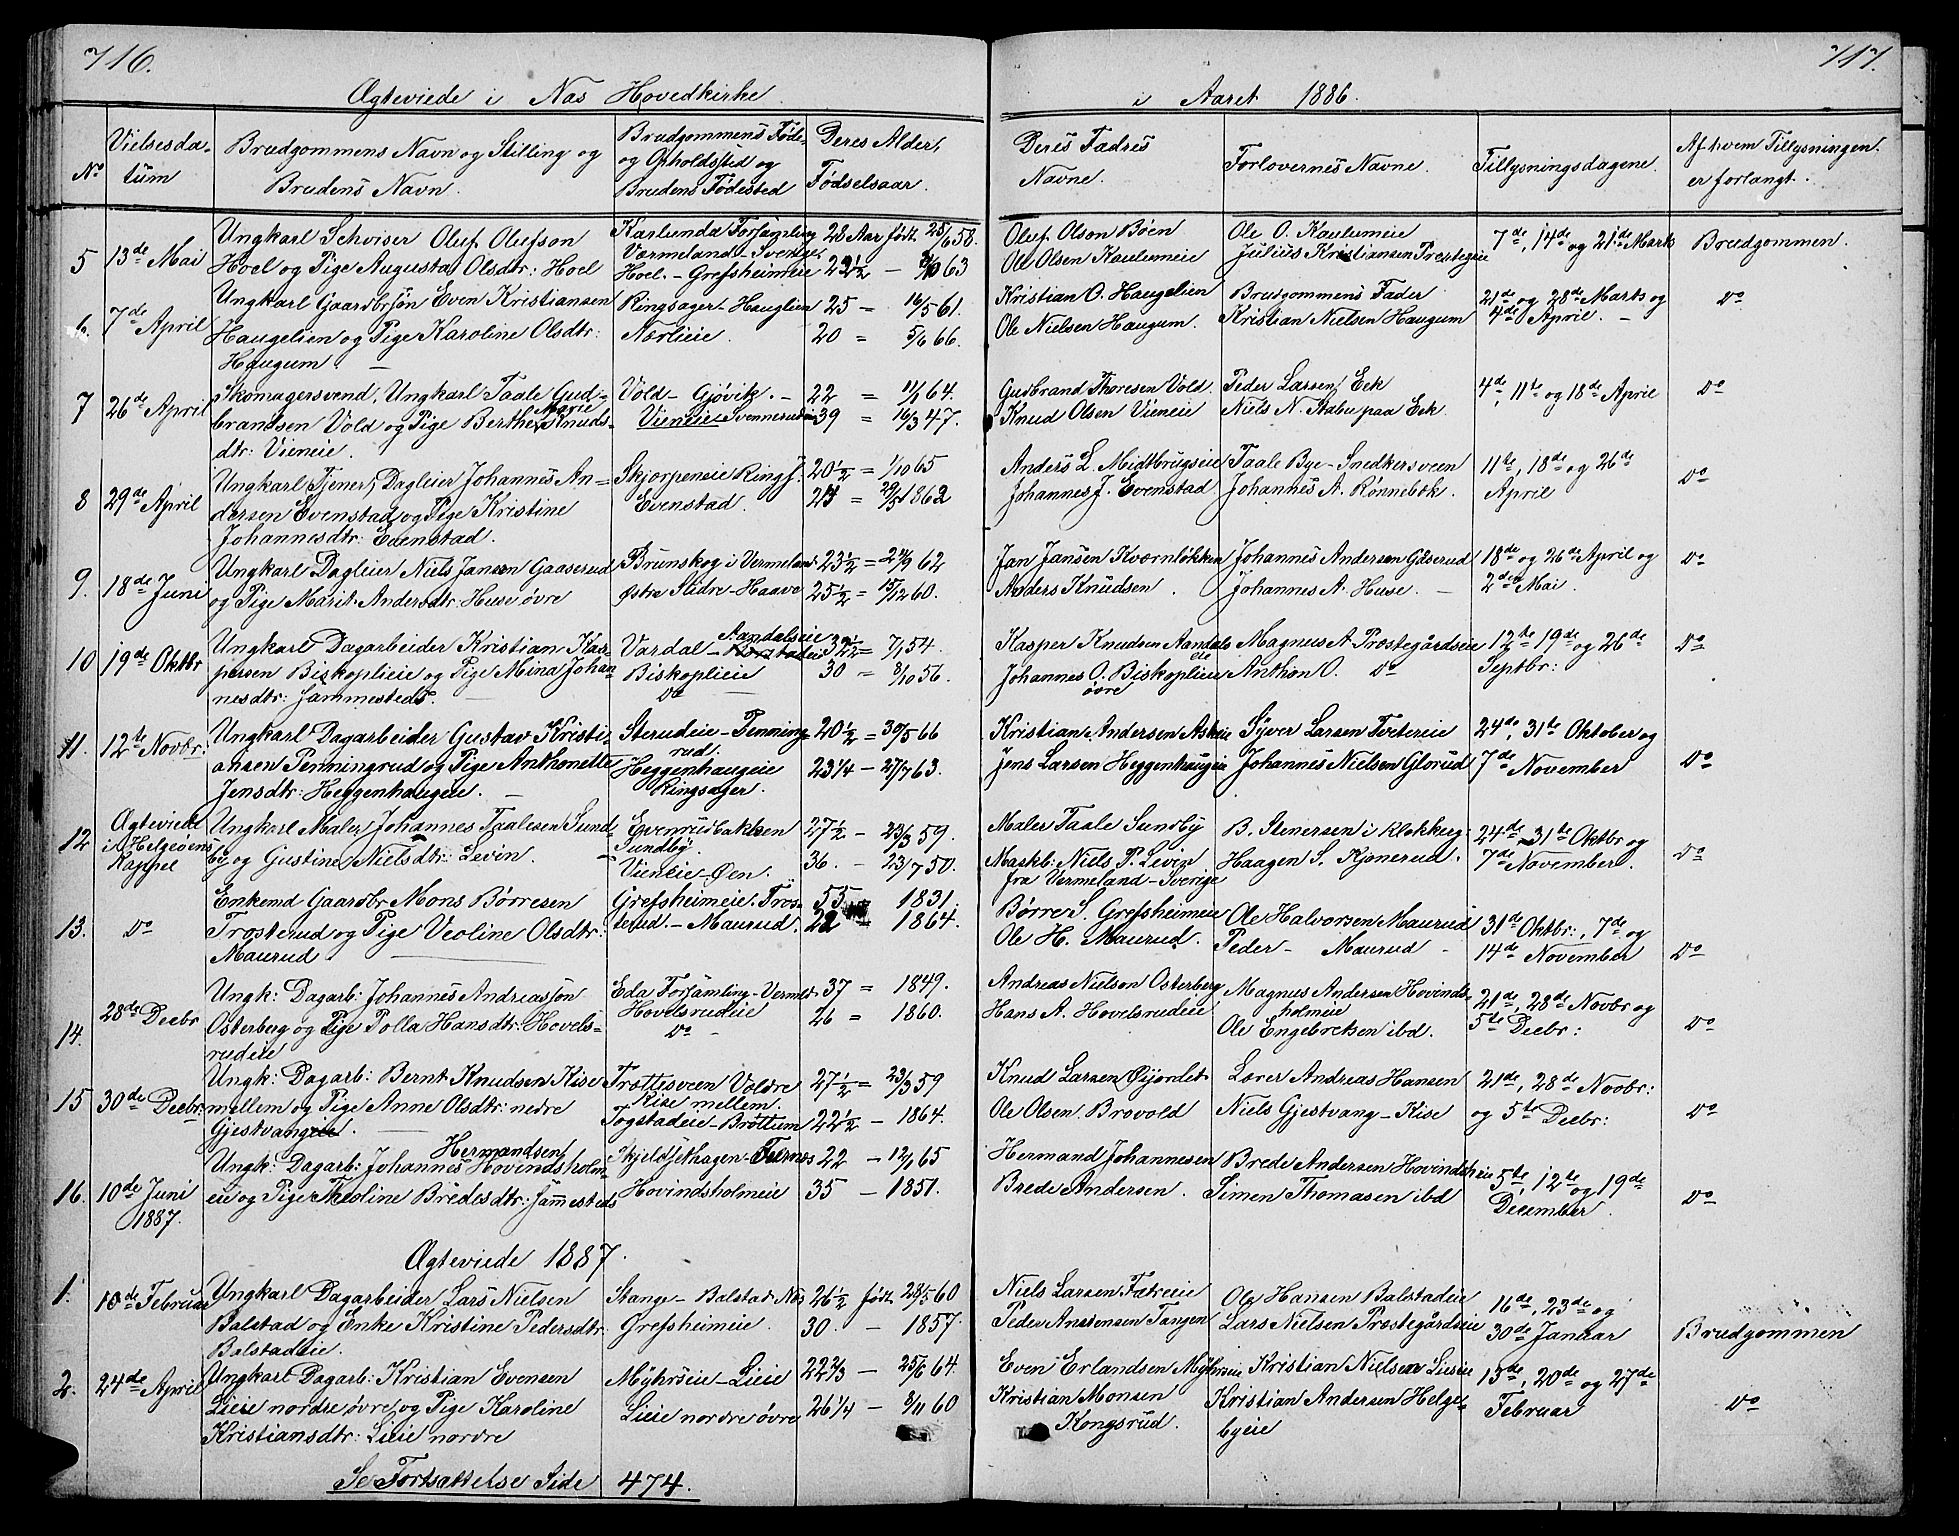 716.
Ægteviede i Næs Hovedkirke
No
Vielsesda-
tum
Brudgommens Navn og Stilling og
Brudens Navn.
Brudgommens Føde-
og Opholdssted og
Brudens Fødested
Deres Alder,
Fødselsaar.
5
13de Mai
Ungkarl Schviser Oluf Olufson
Hoel og Pige Augusta Olsdtr: Hoel
Karlunda Forsamling
Værmeland-Sverige.
Hoel.-Grefsheimeie
28 Aar født 25/6 58.
22½ - 63
6.
7de April
Ungkarl Gaardbrsøn Even Kristiansen
Haugelien og Pige Karoline Olsdtr:
Haugum.
Ringsager-Hauglien
Nærlieie.
25 = 16/5 61.
20 = 5/6 66.
7
26de April
Skomagersvend, Ungkarl Taale Gud-
brandsen Vold og Pige Berthe Marie Knuds-
dtr: Vieneie.
Vold-Gjøvik.
Vieneie Svennerudeie
22 = 11/1 64.
39 = 16/3 47.
8
29de April
Ungkarl Tjener, Dagleier Johannes An-
dersen Evenstad og Pige Kristine
Johannesdtr: Evenstad.
Skjorpeneie Rings.
Evenstad.
20½ = 1/10 65
1862
9.
18de Juni
Ungkarl Dagleier Niels Jansen Gaaserud
og Pige Marit Andersdtr: Huse øvre
Brunskog i Vermeland
Østre Slidre-Haave
23½ = 62
25½ = 15/12 60.
10
19de Oktbr
Ungkarl Dagarbeider Kristian Kas-
persen Biskoplieie og Pige Mina Johan-
nesdtr: Jammesteds.
Vardal-Aandalseie
Biskoplieie
Do
32½ = 7/1 54.
30 = 8/10 56.
11.
12te Novbr:
Ungkarl Dagarbeider Gustav Kristi-
ansen Penningrud og Pige Anthonette
Jensdtr: Heggenhaugeie.
Sterudeie-Penning-
rud.
Heggenhaugeie
Ringsager.
20½ = 30/5 66
23¼ - 27/7 63.
12
Ægteviede
i Helgeøens
Kappel
Ungkarl Maler Johannes Taalesen Sund-
by og Gustine Nielsdtr: Levin.
Evenrudbakken
Sundby.
Vieneie-Øen.
27½ - 23/3 59.
36. - 23/7 50.
13.
Do
Enkemd Gaardbr Mons Børresen
Trosterud og Pige Veoline Olsdtr:
Maurud.
Grefsheimeie. Tros-
terud.-Maurud.
55 - 1831.
22 1864.
14.
28de Decbr
Ungk: Dagarb: Johannes Andreasson
Osterberg og Pige Polla Hansdtr: Hovels-
rudeie
Eda Forsamling-Vermel.
Hovelsrudeie
Do
37 = 1849.
26 = 1860.
15
30de Decbr:
Ungk: Dagarb: Bernt Knudsen Kise
mellem og Pige Anne Olsdtr: nedre
Gjestvangeie.
Trøttesveen Voldre
Kise mellem.
Togstadeie-Brøttum
27½ = 23/3 59
22½ - 1864.
16.
10de Juni
1887.
Ungk: Dagarb: Johannes Hermandsen Hovindsholm-
eie og Pige Theoline Bredesdtr: Jammesteds
Skjeldsethagen-Furnes
Hovindsholmeie
22 - 12/1 65
35 - 1851.
Ægteviede 1887.
1.
18de Februar
Ungkarl Dagarbeider Lars Nielsen
Balstad og Enke Kristine Pedersdtr:
Balstadeie.
Stange-Balstad Næs
Grefsheimeie.
26½ født 28/5 60
30. - 1857.
2.
24de April
Ungkarl Dagarb: Kristian Evensen
Lieie nordre øvre, og Pige Karoline
Kristiansdtr: Lieie nordre
Myhrseie-Lieie
Lieie nordre øvre
22⅔ - 25/6 64.
26¼ - 8/11 60
Se Fortsættelse Side 474.
717.
i Aaret 1886.
Deres Fædres
Navne.
Forlovernes Navne.
Tillysningsdagene.
Af hvem Tillysningen
er forlangt.
Oluf Olson Boen
Ole Olsen Kaulumeie
Ole O. Kaulumeie
Julius Kristiansen Prestegeie
7de, 14de og 21de Marts
Brudgommen.
Kristian O. Haugelien
Ole Nielsen Haugum.
Brudgommens Fader
Kristian Nielsen Haugum
21de og 28de Marts og
4de April.
Do
Gudbrand Thoresen Vold.
Knud Olsen Vieneie
Peder Larsen Eek
Niels N. Aabu paa Eek
4de, 11te og 18de April
Do
Anders L. Midtbrugseie
Johannes J. Evenstad
Taale Bye-Snedkersveen
Johannes A. Rønnebæk.
11te, 18de og 26de
April
Do
Jan Jansen Kværnløkken
Anders Knudsen.
Johannes Andersen Gåserud
Johannes A. Huse.
18de og 26de April og
2den Mai.
Do
Kasper Knudsen Aandals
Johannes O. Biskoplieie
øvre
Magnus A. Præstegårdseie
Anthon O. Do
12te 19de og 26de
Septbr:
Do
Kristian Andersen Askeie
Jens Larsen Heggenhaugeie
Syver Larsen Tvetereie
Johannes Nielsen Glorud
24de, 31te Oktober og
7de November
Do
Maler Taale Sundby
Maskb: Niels P. Levin
fra Vermeland-Sverige
B. Stenersen i Klokkerg.
Haagen S. Kjonerud.
24de 31te Oktbr og
7de November.
Do
Børre S. Grefsheimeie
Ole H. Maurud.
Ole Halvorsen Maurud
Peder - Maurud -
31te Oktbr:, 7de og
14de November
Do
Andreas Nielson Osterberg
Hans A. Hovelsrudeie
Magnus Andersen Hovinds-
holmeie
Ole Engebretsen ibd.
21de, 28de Novbr og
5te Decbr:
Do
Knud Larsen Øijordet
Ole Olsen Brovold
Lærer Andreas Hansen
Niels Gjestvang-Kise
21de, 28de Novbr:
og 5te Decbr:
Do
Hermand Johannesen
Brede Andersen.
Brede Andersen Hovindsheie
Simen Thomasen ibd
5te, 12te og 19de
December.
Do
Niels Larsen Fætreie
Peder Anstensen Tangen
Ole Hansen Balstadeie
Lars Nielsen Præstegårdseie
16de, 23de og
30de Januar
Brudgommen
Even Erlandsen Myhrseie
Kristian Monsen
Kongsrud.
Kristian Nielsen Lieie
Kristian Andersen Helge-
byeie
13de, 20de og 27de
Februar
Do